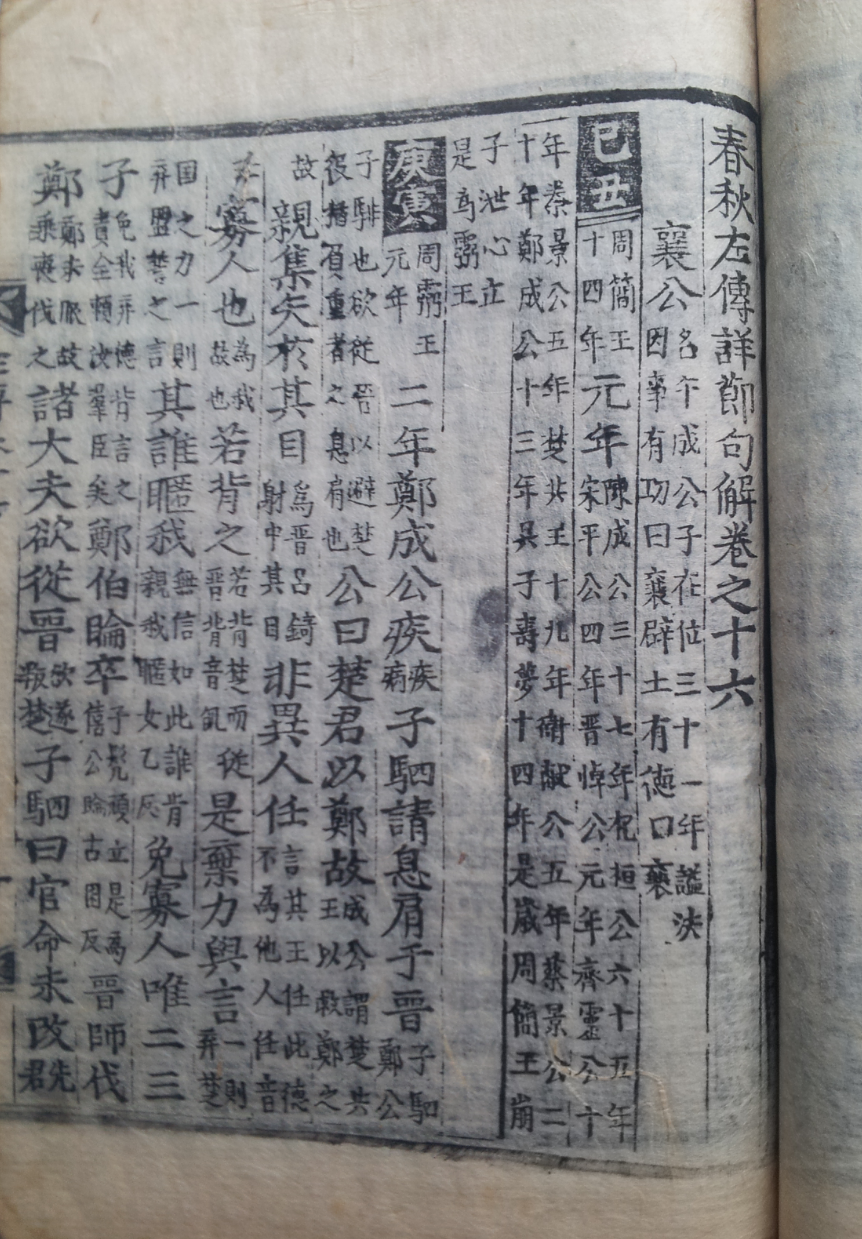 春秋左傳詳節句解卷之十六
襄公名午成公子在位三十一年謚法因事有功曰襄辟土有德曰襄
己丑周簡王十四年元年陳成公三十七年杞桓公六十五年宋平公四年晋悼公元年齊靈公十
年秦景公五年楚共王十九年衛献公五年蔡景公二十年鄭成公十三年吴子壽夢十四年是歲周簡王崩
子泄心立是為霛王
庚寅周霛王元年二年鄭成公疾疾病子駟請息肩于晋子駟鄭公
子騑也欲従晋以避楚役猶負重者之息肩也公曰楚君以鄭故成公謂楚共王以救鄭之
故親集矢於其目為晋吕錡射中其目非異人任言其王任此德不為他人任音
壬寡人也為我故也若背之若背楚而晋背音佩従是棄力與言一則弃楚
国之力一則弃盟誓之言其誰暱我無信如此誰肯親我暱女乙反免寡人唯二三
子免我弃德背言之責全頼汝羣臣矣鄭伯睔卒子髠頑立是為僖公睔古困反晋師伐
鄭鄭未服故乘喪伐之諸大夫欲従晋欲遂叛楚子駟曰官命未改先君